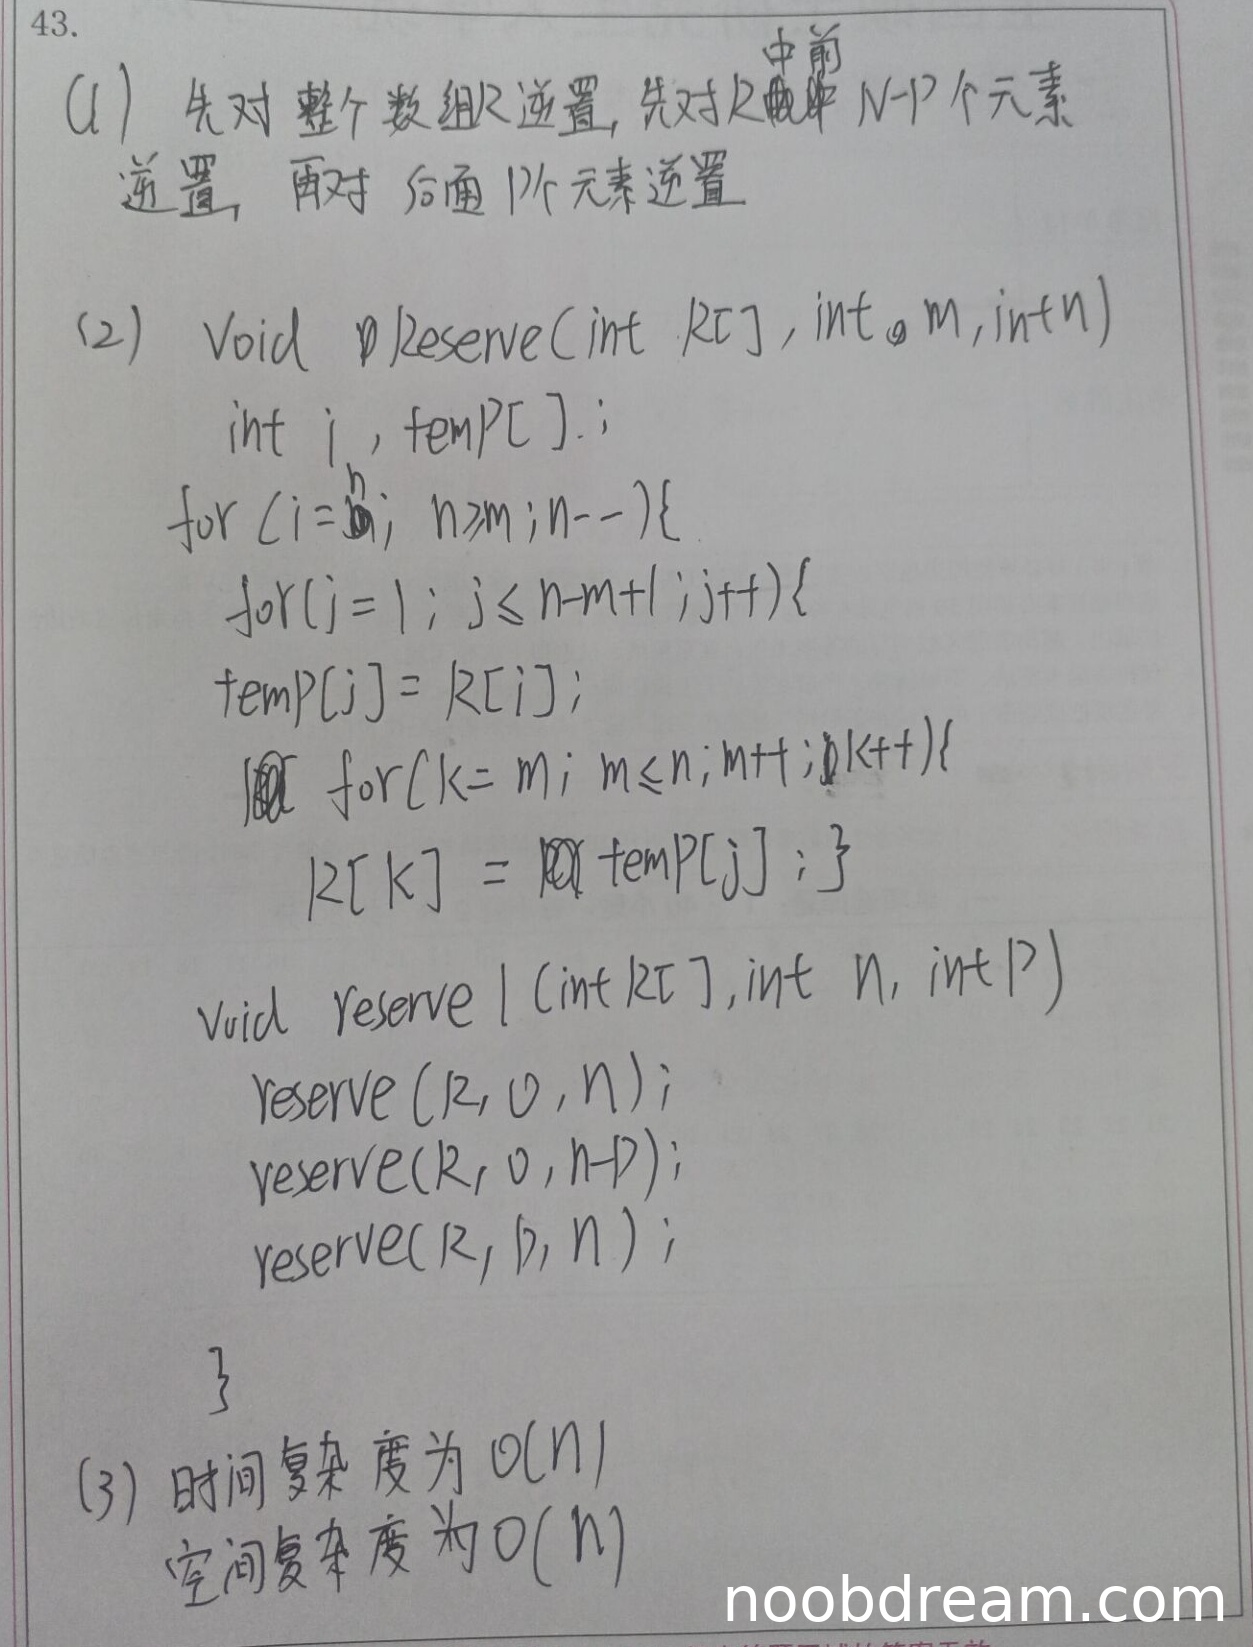 43.
(1) 先对整个数组R逆置, 先对R中前 N-P个元素
逆置, 再对后面P个元素逆置
(2) Void Reserve(int R[], int m, int n)
int i, temP[];
for (i=n; n≥m; n--){
for(j=1; j≤n-m+1; j++){
temP[j]=R[i];
for(k=m; m≤n; m++; k++){
R[K] = temP[j]; }
void reserve1(int R[], int n, int P)
reserve(R, 0, n);
reserve(R, 0, n-P);
reserve(R, P, n);
}
(3) 时间复杂度为O(n)
空间复杂度为O(n)
noobdream.com